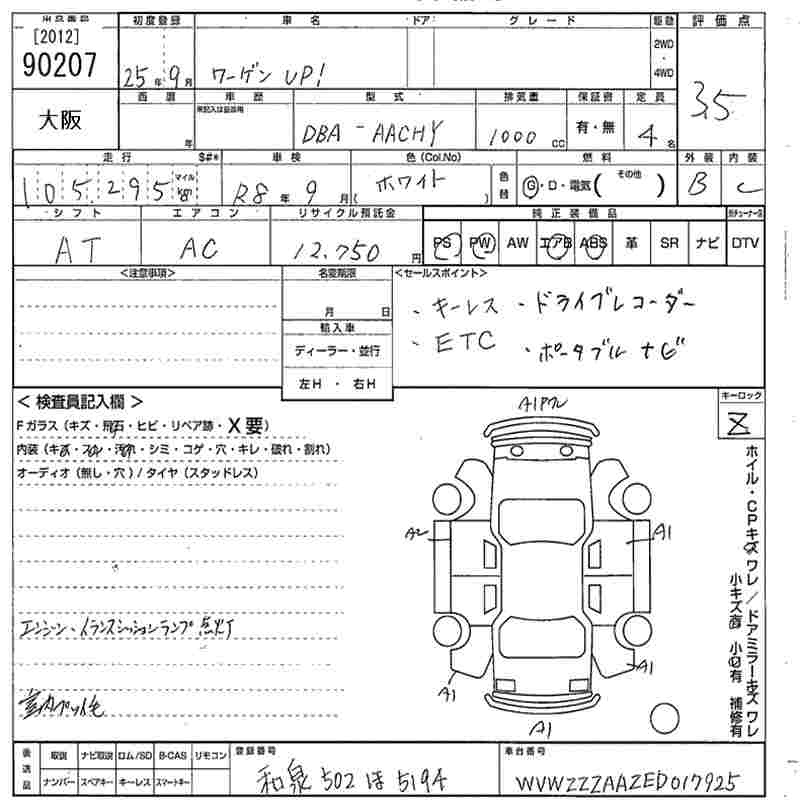 [2012]
90207
大阪
初度登録
25年9月
車名
ワーゲン UP!
ドア
グレード
駆動
2WD
・
4WD
評価点
3.5
西暦
年
車歴
未記入は自家用
型式
DBA - AACHY
排気量
1000 cc
保証書
有・無
定員
4名
走行
105,295
マイル
km
S#*
車検
R8年9月
色(Col.No)
ホワイト
( )
色替
燃料
G・D・電気( その他 )
外装
B
内装
C
シフト
AT
エアコン
AC
リサイクル預託金
12,750円
純正装備品
PS PW AW エアB ABS 革 SR ナビ
地デジチューナー付
DTV
<注意事項>
名変期限
月 日
輸入車
ディーラー・並行
左H ・ 右H
<セールスポイント>
・キーレス ・ドライブレコーダー
・ETC ・ポータブルナビ
< 検査員記入欄 >
Fガラス(キズ・飛石・ヒビ・リペア跡・X要)
内装(キズ・スレ・汚れ・シミ・コゲ・穴・キレ・破れ・割れ)
オーディオ(無し・穴)/タイヤ(スタッドレス)
エンジン・トランスミッションランプ点灯
室内ペット毛
A1ワレ
A2
A1
A1
A1
A1
キーロック
Z
ホイル・CPキズワレ/ドアミラーキズワレ
小キズ有 小凹有 補修有
後送品
取説 ナビ取説 ロム/SD B-CAS リモコン
ナンバー スペアキー キーレス スマートキー
登録番号
和泉 502 ほ 5194
車台番号
WVWZZZAAZED017925